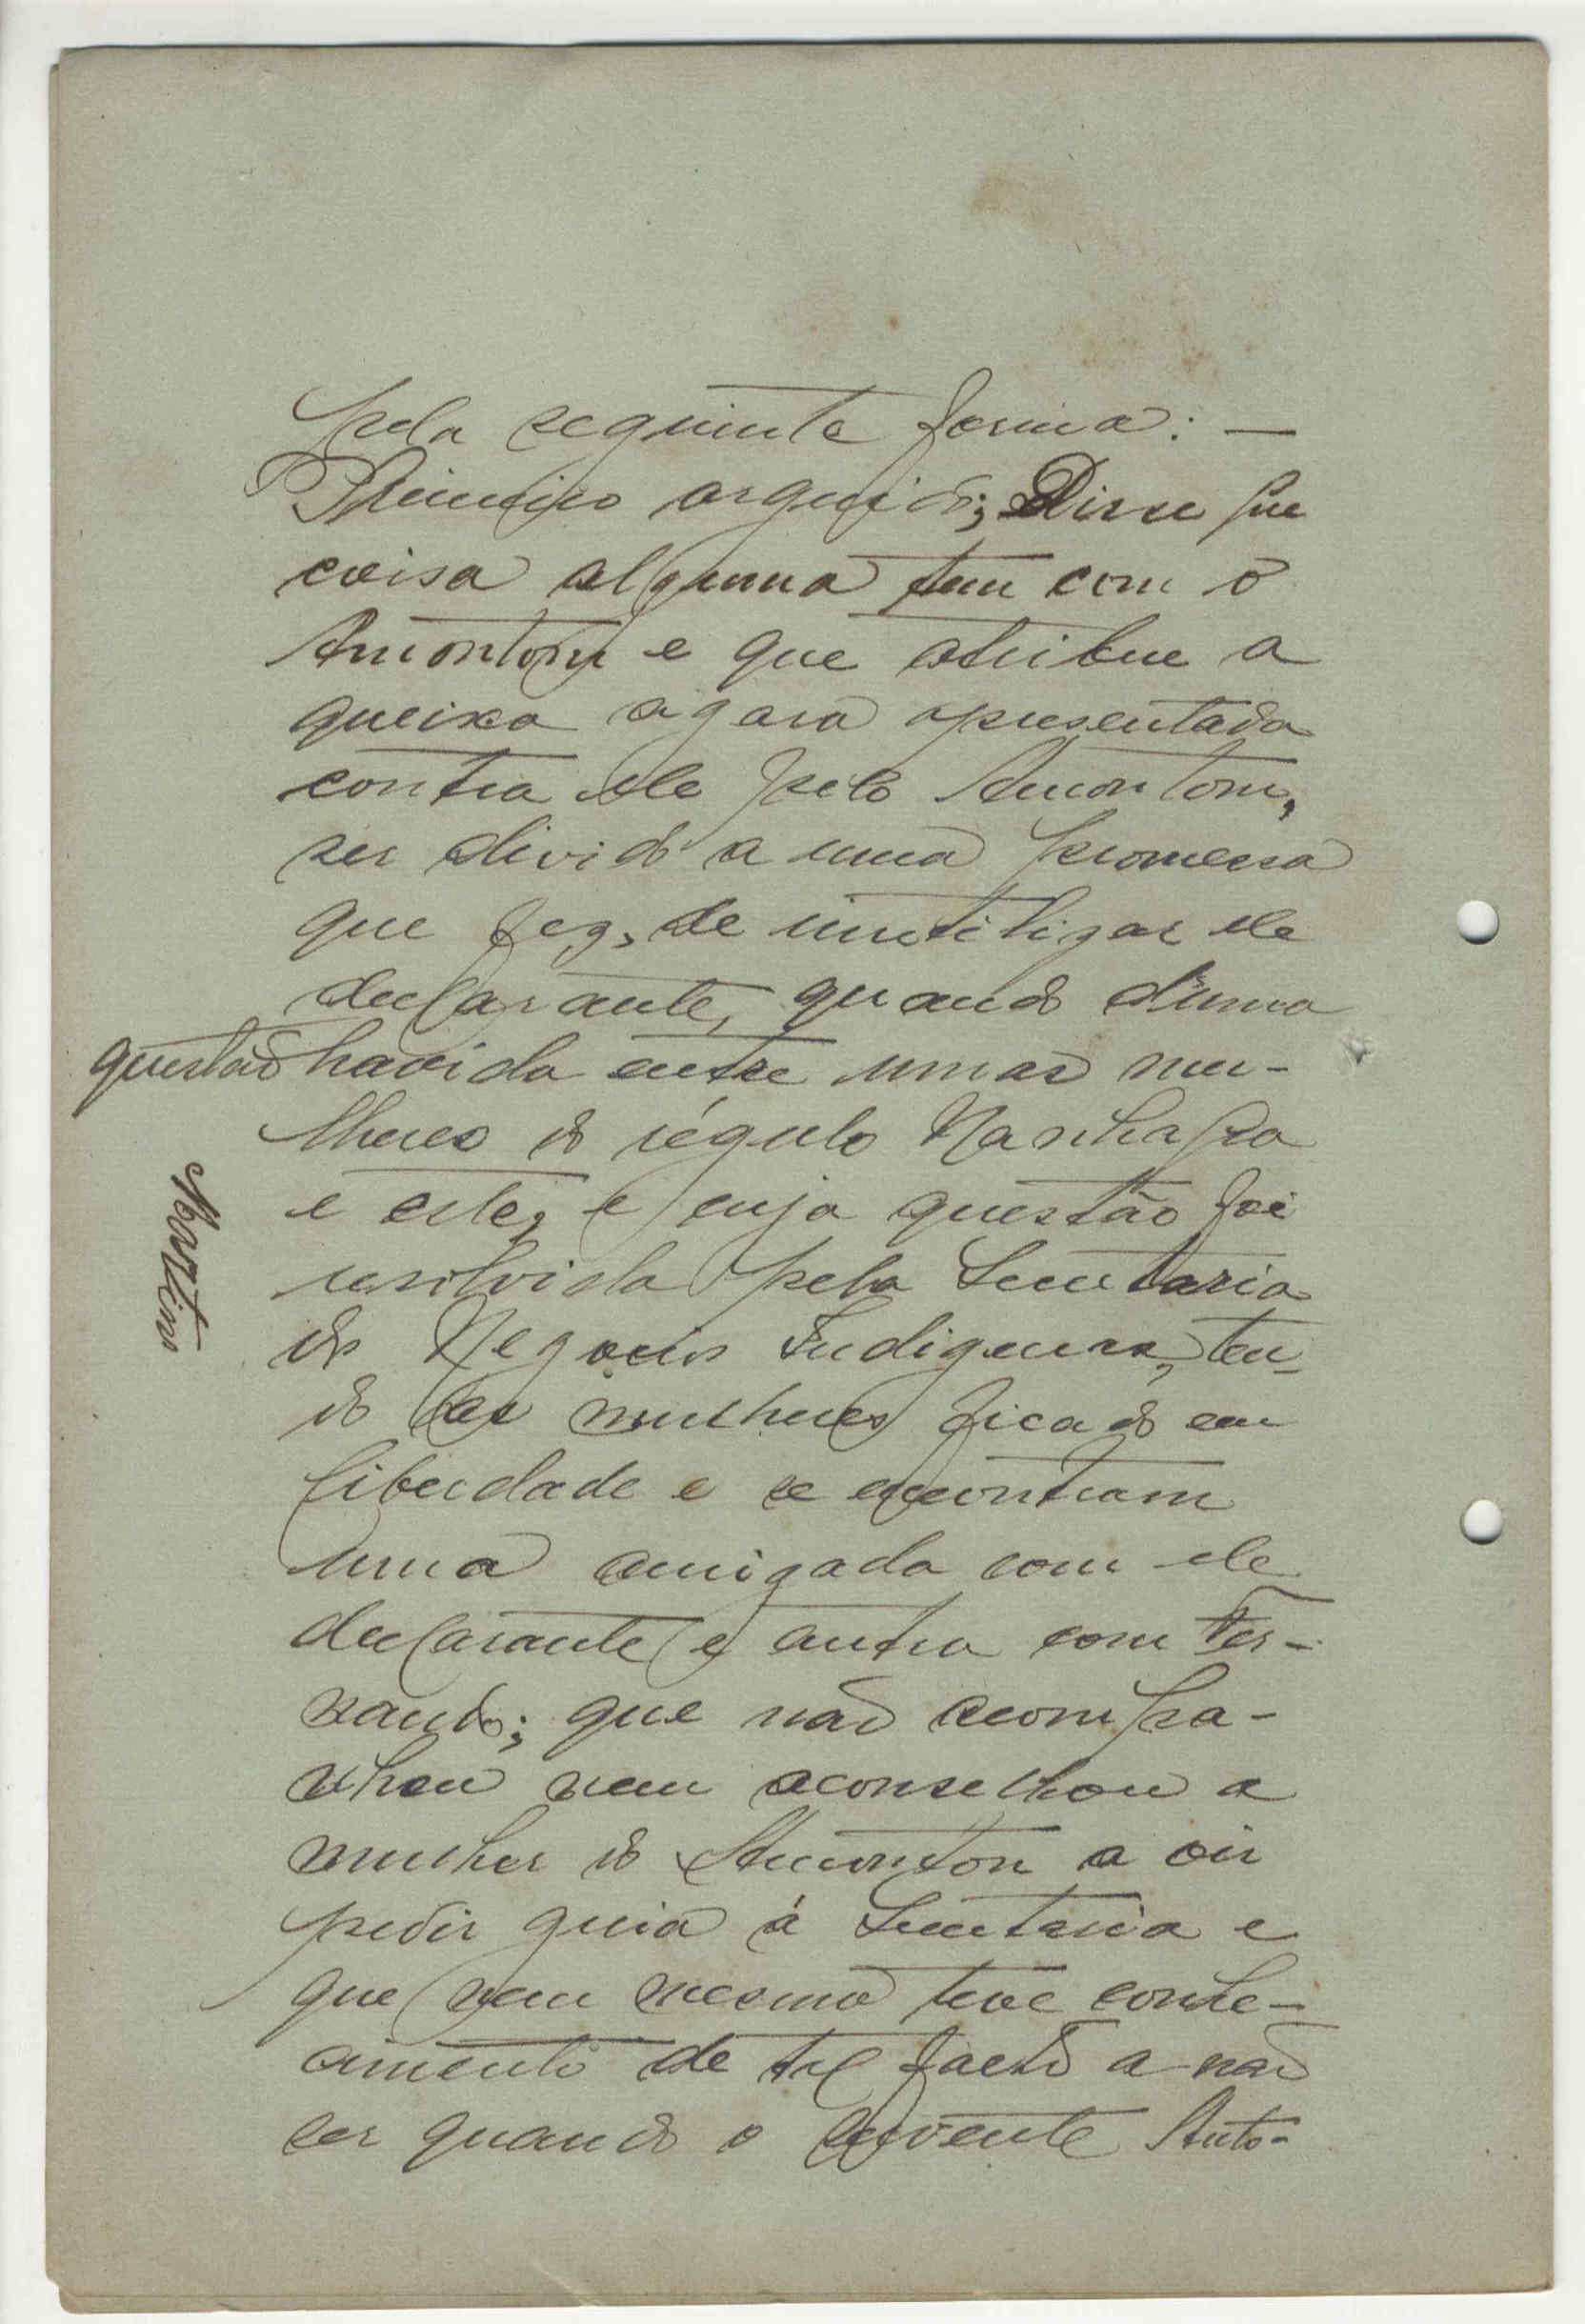 pela seguinte forma: —
Primeiro arguido; Disse que
coisa alguma tem com o
Amontom e que atribue a
queixa agora apresentada
contra ele pelo Amontom,
ser divido a uma promessa
que fez, de inutilizar ele
declarante, quando d'uma
questão havida entre umas mu-
lheres do régulo Manhapa
e este, e cuja questão foi
resolvida pela Secretaria
do Negocios Indigenas, ten-
do as mulheres ficado em
liberdade e se encontram
uma amigada com ele
declarante e outra com Fer-
nando; que não acompa-
nhou nem aconselhou a
mulher do Amonton a vir
pedir guia á Secretaria e
que nem mesmo teve conhe-
cimento de tal facto a não
ser quando o servente Anto-
Martins